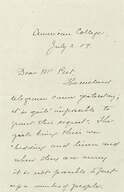 American College
July 2. 19.
Dear Mr Peet.
telegram came yesterday,
it is quite impossible to
grant this request. The
girls bring their own
bedding and linen and
when they are away
it is not possible to put
up a number of people.